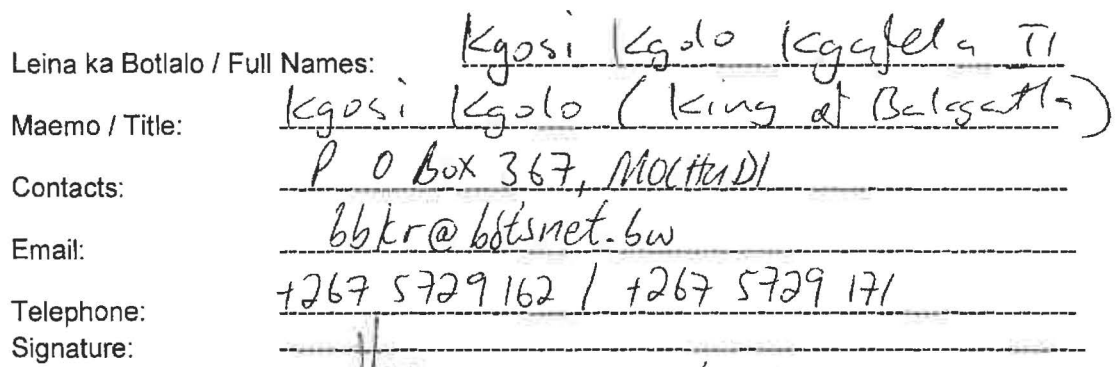 Leina ka Botlalo / Full Names: Kgosi Kgolo Kgafela II
Maemo / Title: Kgosi Kgolo (King of Bakgatla)
Contacts: P O Box 367, MOCHUDI
Email: bbkr@botsnet.bw
Telephone: +267 5729 162 / +267 5729 171
Signature: